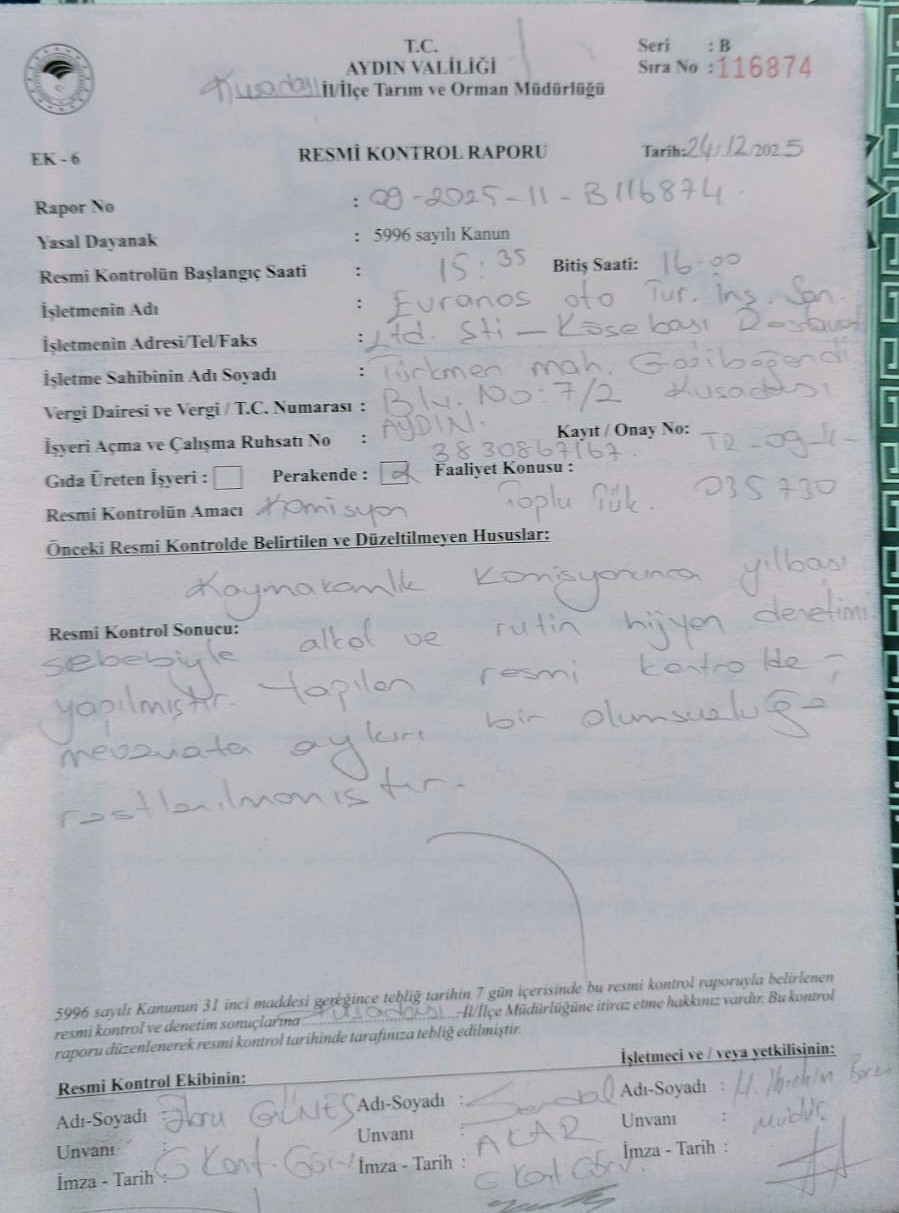 T.C.
AYDIN VALİLİĞİ
Kuşadası İl/İlçe Tarım ve Orman Müdürlüğü
Seri : B
Sıra No : 116874
EK - 6
RESMİ KONTROL RAPORU
Tarih: 24/12/2025
Rapor No : 09-2025-11-B116874.
Yasal Dayanak : 5996 sayılı Kanun
Resmi Kontrolün Başlangıç Saati : 15:35 Bitiş Saati: 16:00
İşletmenin Adı : Euranos oto Tur. İnş. San.
İşletmenin Adresi/Tel/Faks : Ltd. Şti - Köşebaşı
İşletme Sahibinin Adı Soyadı : Türkmen mah. Gazibeğendi
Vergi Dairesi ve Vergi / T.C. Numarası : Blv. No: 7/2 Kuşadası
İşyeri Açma ve Çalışma Ruhsatı No : AYDIN. Kayıt / Onay No: TR-09-K-
3830867167.
Gıda Üreten İşyeri : Perakende : Faaliyet Konusu :
035730
Resmi Kontrolün Amacı Komisyon Toplu Tük.
Önceki Resmi Kontrolde Belirtilen ve Düzeltilmeyen Hususlar:
Kaymakamlık Komisyonunca yılbaşı
Resmi Kontrol Sonucu:
sebebiyle alkol ve rutin hijyen denetimi
yapılmıştır. Yapılan resmi kontrolde
mevzuata aykırı bir olumsuzluğa
rastlanılmamıştır.
5996 sayılı Kanunun 31 inci maddesi gereğince tebliğ tarihin 7 gün içerisinde bu resmi kontrol raporuyla belirlenen
resmi kontrol ve denetim sonuçlarına Kuşadası İl/İlçe Müdürlüğüne itiraz etme hakkınız vardır. Bu kontrol
raporu düzenlenerek resmi kontrol tarihinde tarafınıza tebliğ edilmiştir.
Resmi Kontrol Ekibinin:
İşletmeci ve / veya yetkilisinin:
Adı-Soyadı : Ebru GÜNEŞ Adı-Soyadı : Serdal Adı-Soyadı : H. İbrahim
Unvanı Unvanı : ACAR Unvanı : Müdür
İmza - Tarih : G Kont. Görv İmza - Tarih : G Kont Görv. İmza - Tarih :